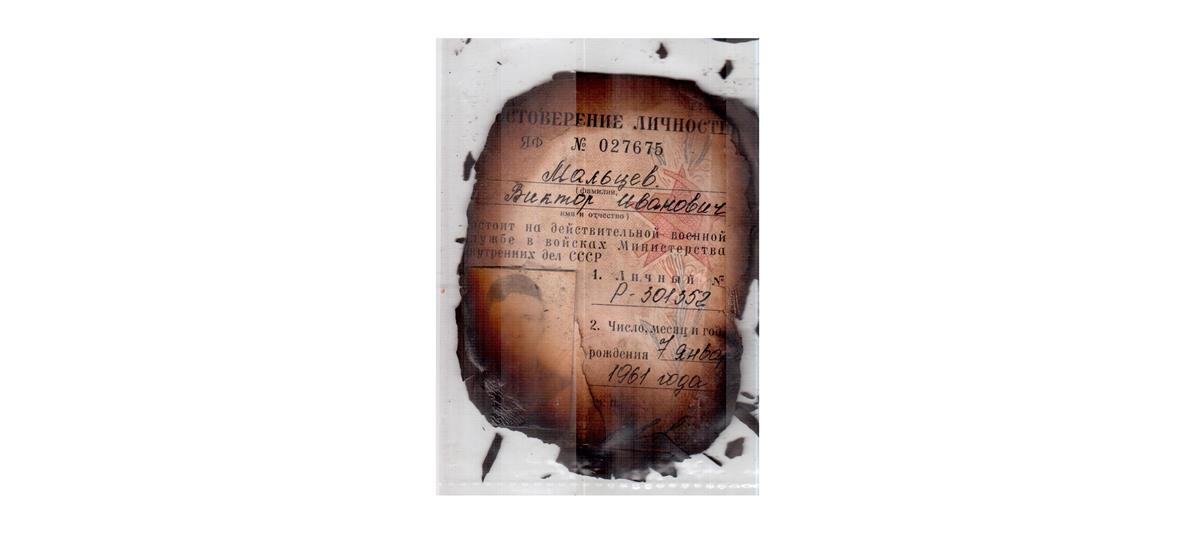 СТОВЕРЕНИЕ ЛИЧНОСТИ
ЯФ № 027675
Мальцев.
(фамилия,
Виктор Иванович
имя и отчество)
стоит на действительной военной
лужбе в войсках Министерства
нутренних дел СССР
1. Личный №
Р-301352
2. Число, месяц и год
рождения 7 янва
1961 года